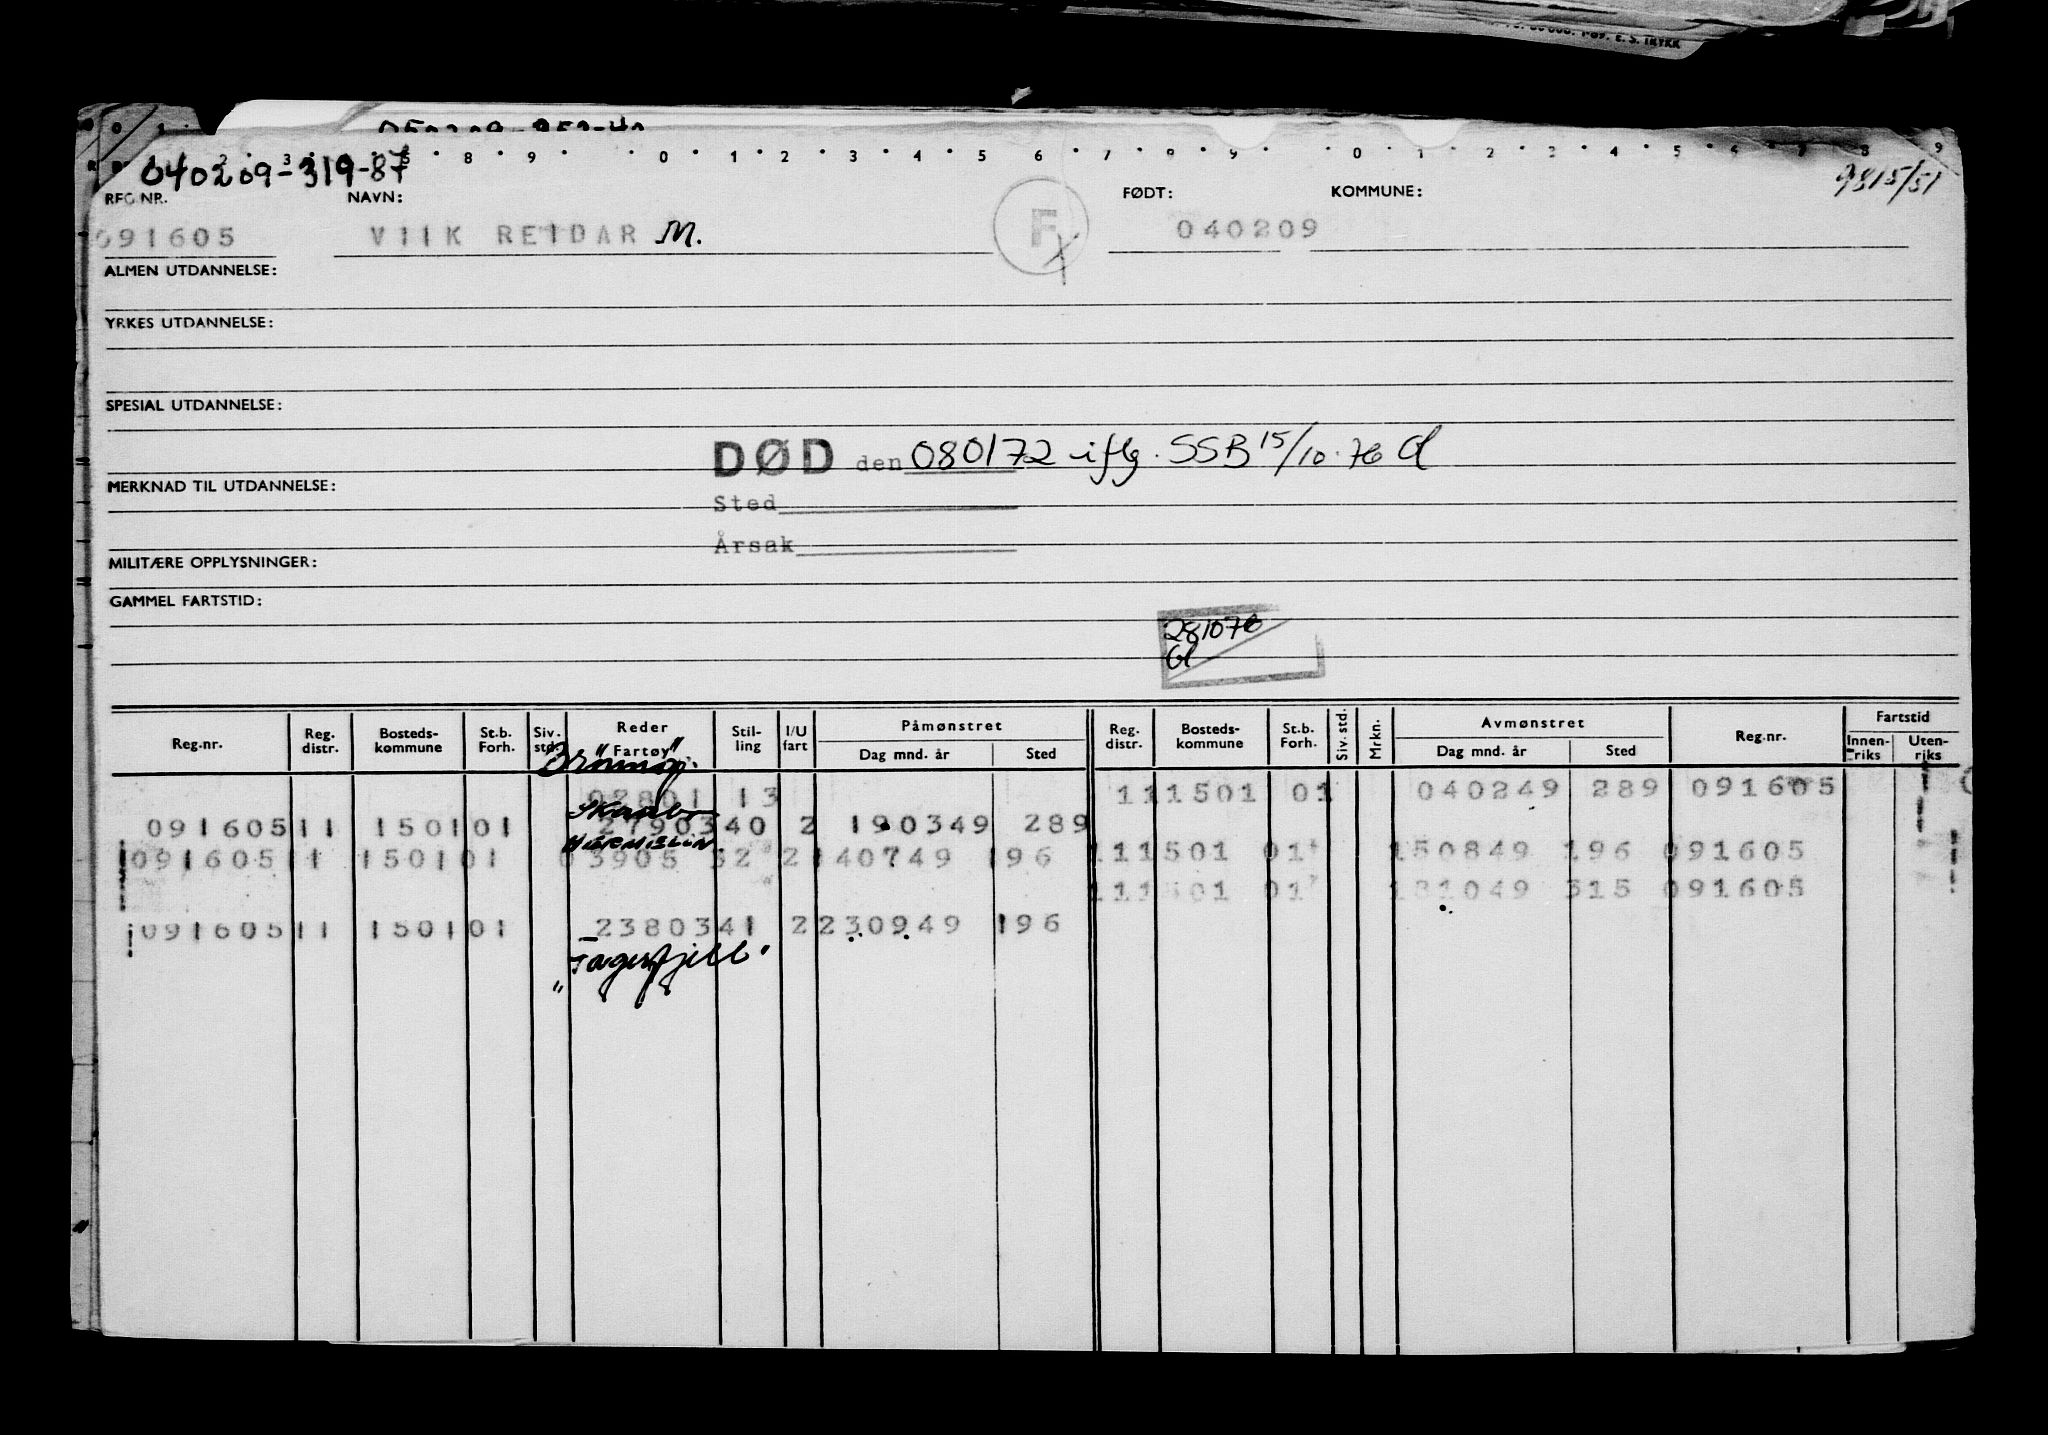 040209-319-87
9815/51
REG.NR. NAVN: FØDT: KOMMUNE:
091605 VIIK REIDAR M. F 040209
ALMEN UTDANNELSE:
YRKES UTDANNELSE:
SPESIAL UTDANNELSE:
DØD den 080172 iflg. SSB 15/10.76
MERKNAD TIL UTDANNELSE:
Sted
Årsak
MILITÆRE OPPLYSNINGER:
GAMMEL FARTSTID:
281076
Reg.nr. Reg. distr. Bosteds-kommune St.b. Forh. Siv. std. Reder "Fartøy" Stil-ling I/U fart Påmønstret Dag mnd. år Sted Reg. distr. Bosteds-kommune St.b. Forh. Siv. std. Mrkn. Avmønstret Dag mnd. år Sted Reg.nr. Fartstid Innen-riks Uten-riks
02801 13 11 1501 01 040249 289 091605
091605 11 1501 01 27903 40 2 190349 289
091605 11 1501 01 03905 52 2 140749 196 11 1501 01 150849 196 091605
11 1501 01 181049 315 091605
091605 11 1501 01 23803 41 2 230949 196
"Fagerfjell"